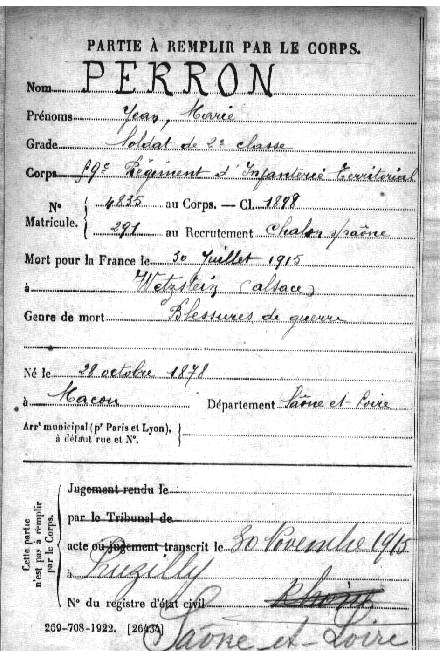 PARTIE À REMPLIR PAR LE CORPS.
Nom PERRON
Prénoms Jean, Marie
Grade Soldat de 2e classe
Corps Régiment d'Infanterie territorial
N° Matricule. { 4835 au Corps. — Cl. 1898
291 au Recrutement Chalon s/saône
Mort pour la France le 30 Juillet 1915
à Wetzstein (alsace)
Genre de mort Blessures de guerre
Né le 28 octobre 1878
à Macon Département Saône et Loire
Arrt municipal (pr Paris et Lyon), à défaut rue et N°. {
Cette partie n'est pas à remplir par le Corps.
Jugement rendu le
par le Tribunal de
acte ou jugement transcrit le 30 Novembre 1915
à Ruzilly
N° du registre d'état civil Rhône
Saône-et-Loire
269-708-1922. [26434]